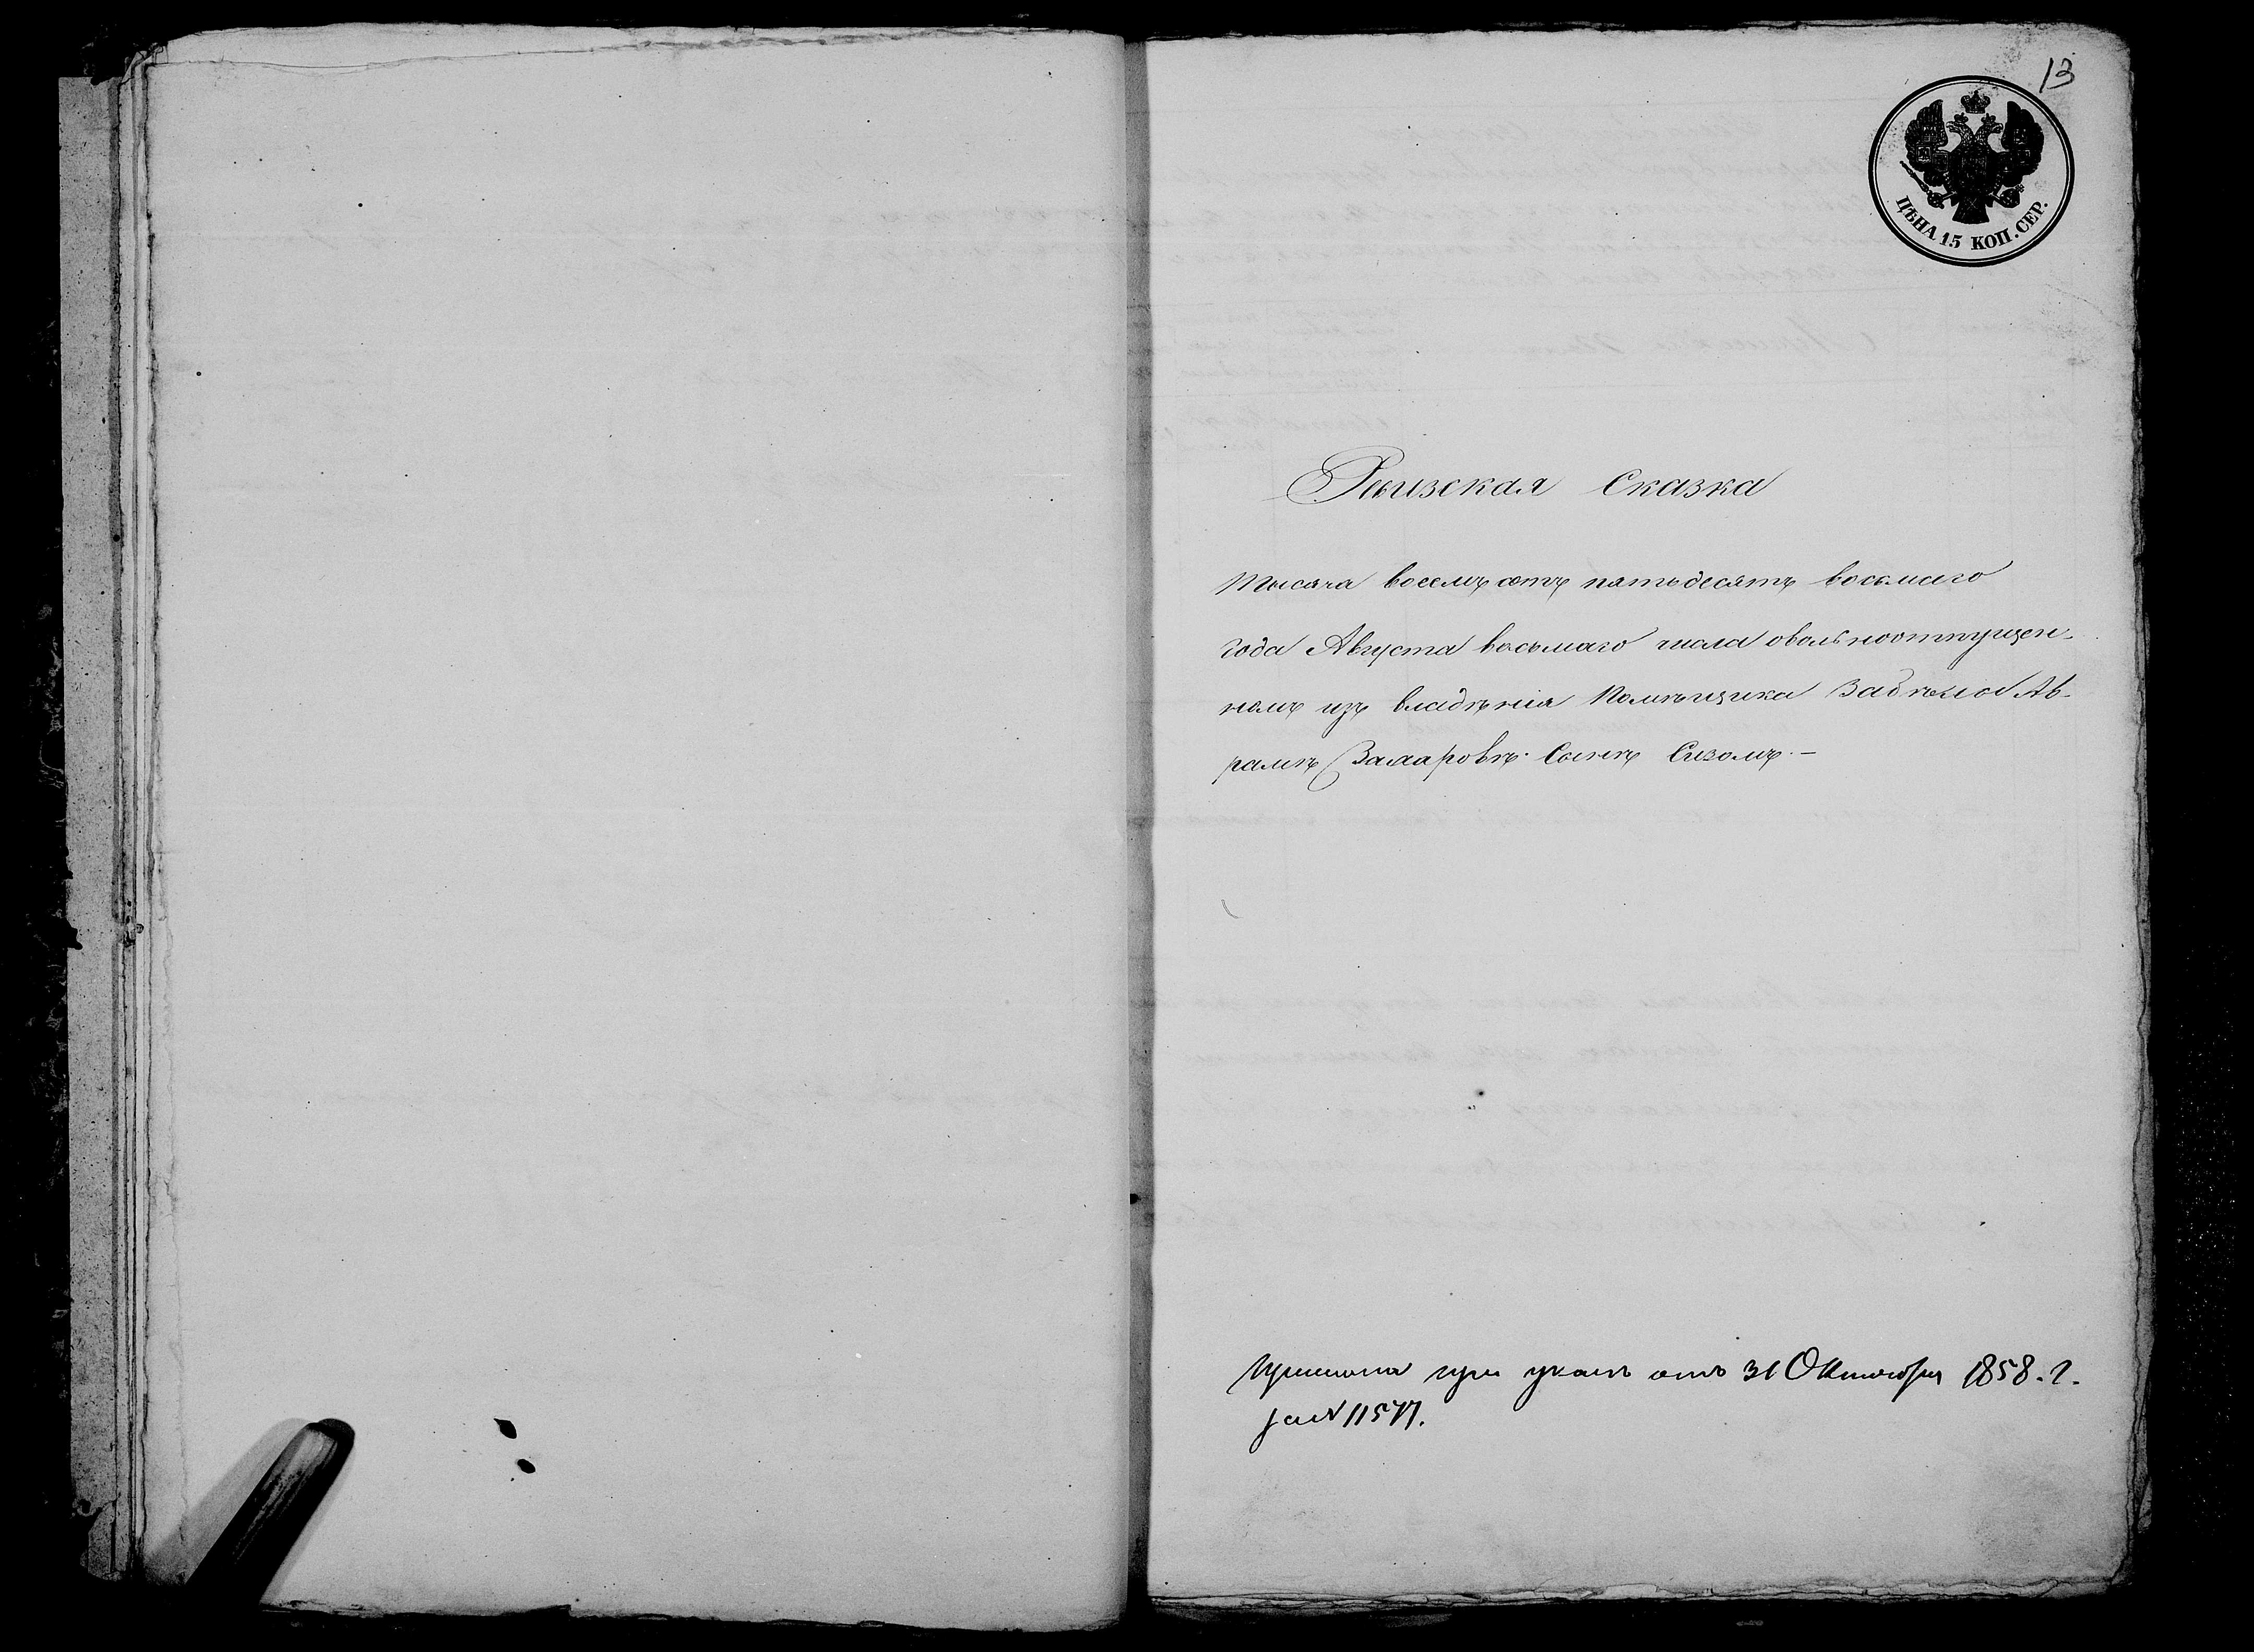 13
ЦѢНА 15 КОП. СЕР.
Ревизская Сказка
Тысяча восемь сотъ пятьдесятъ восьмаго
года Августа восьмаго числа о вольноотпущен-
номъ изъ владѣнія Помѣщика Ав-
рамѣ Сынѣ –
при указѣ отъ 31 Октября 1858. г.
за N 11577.